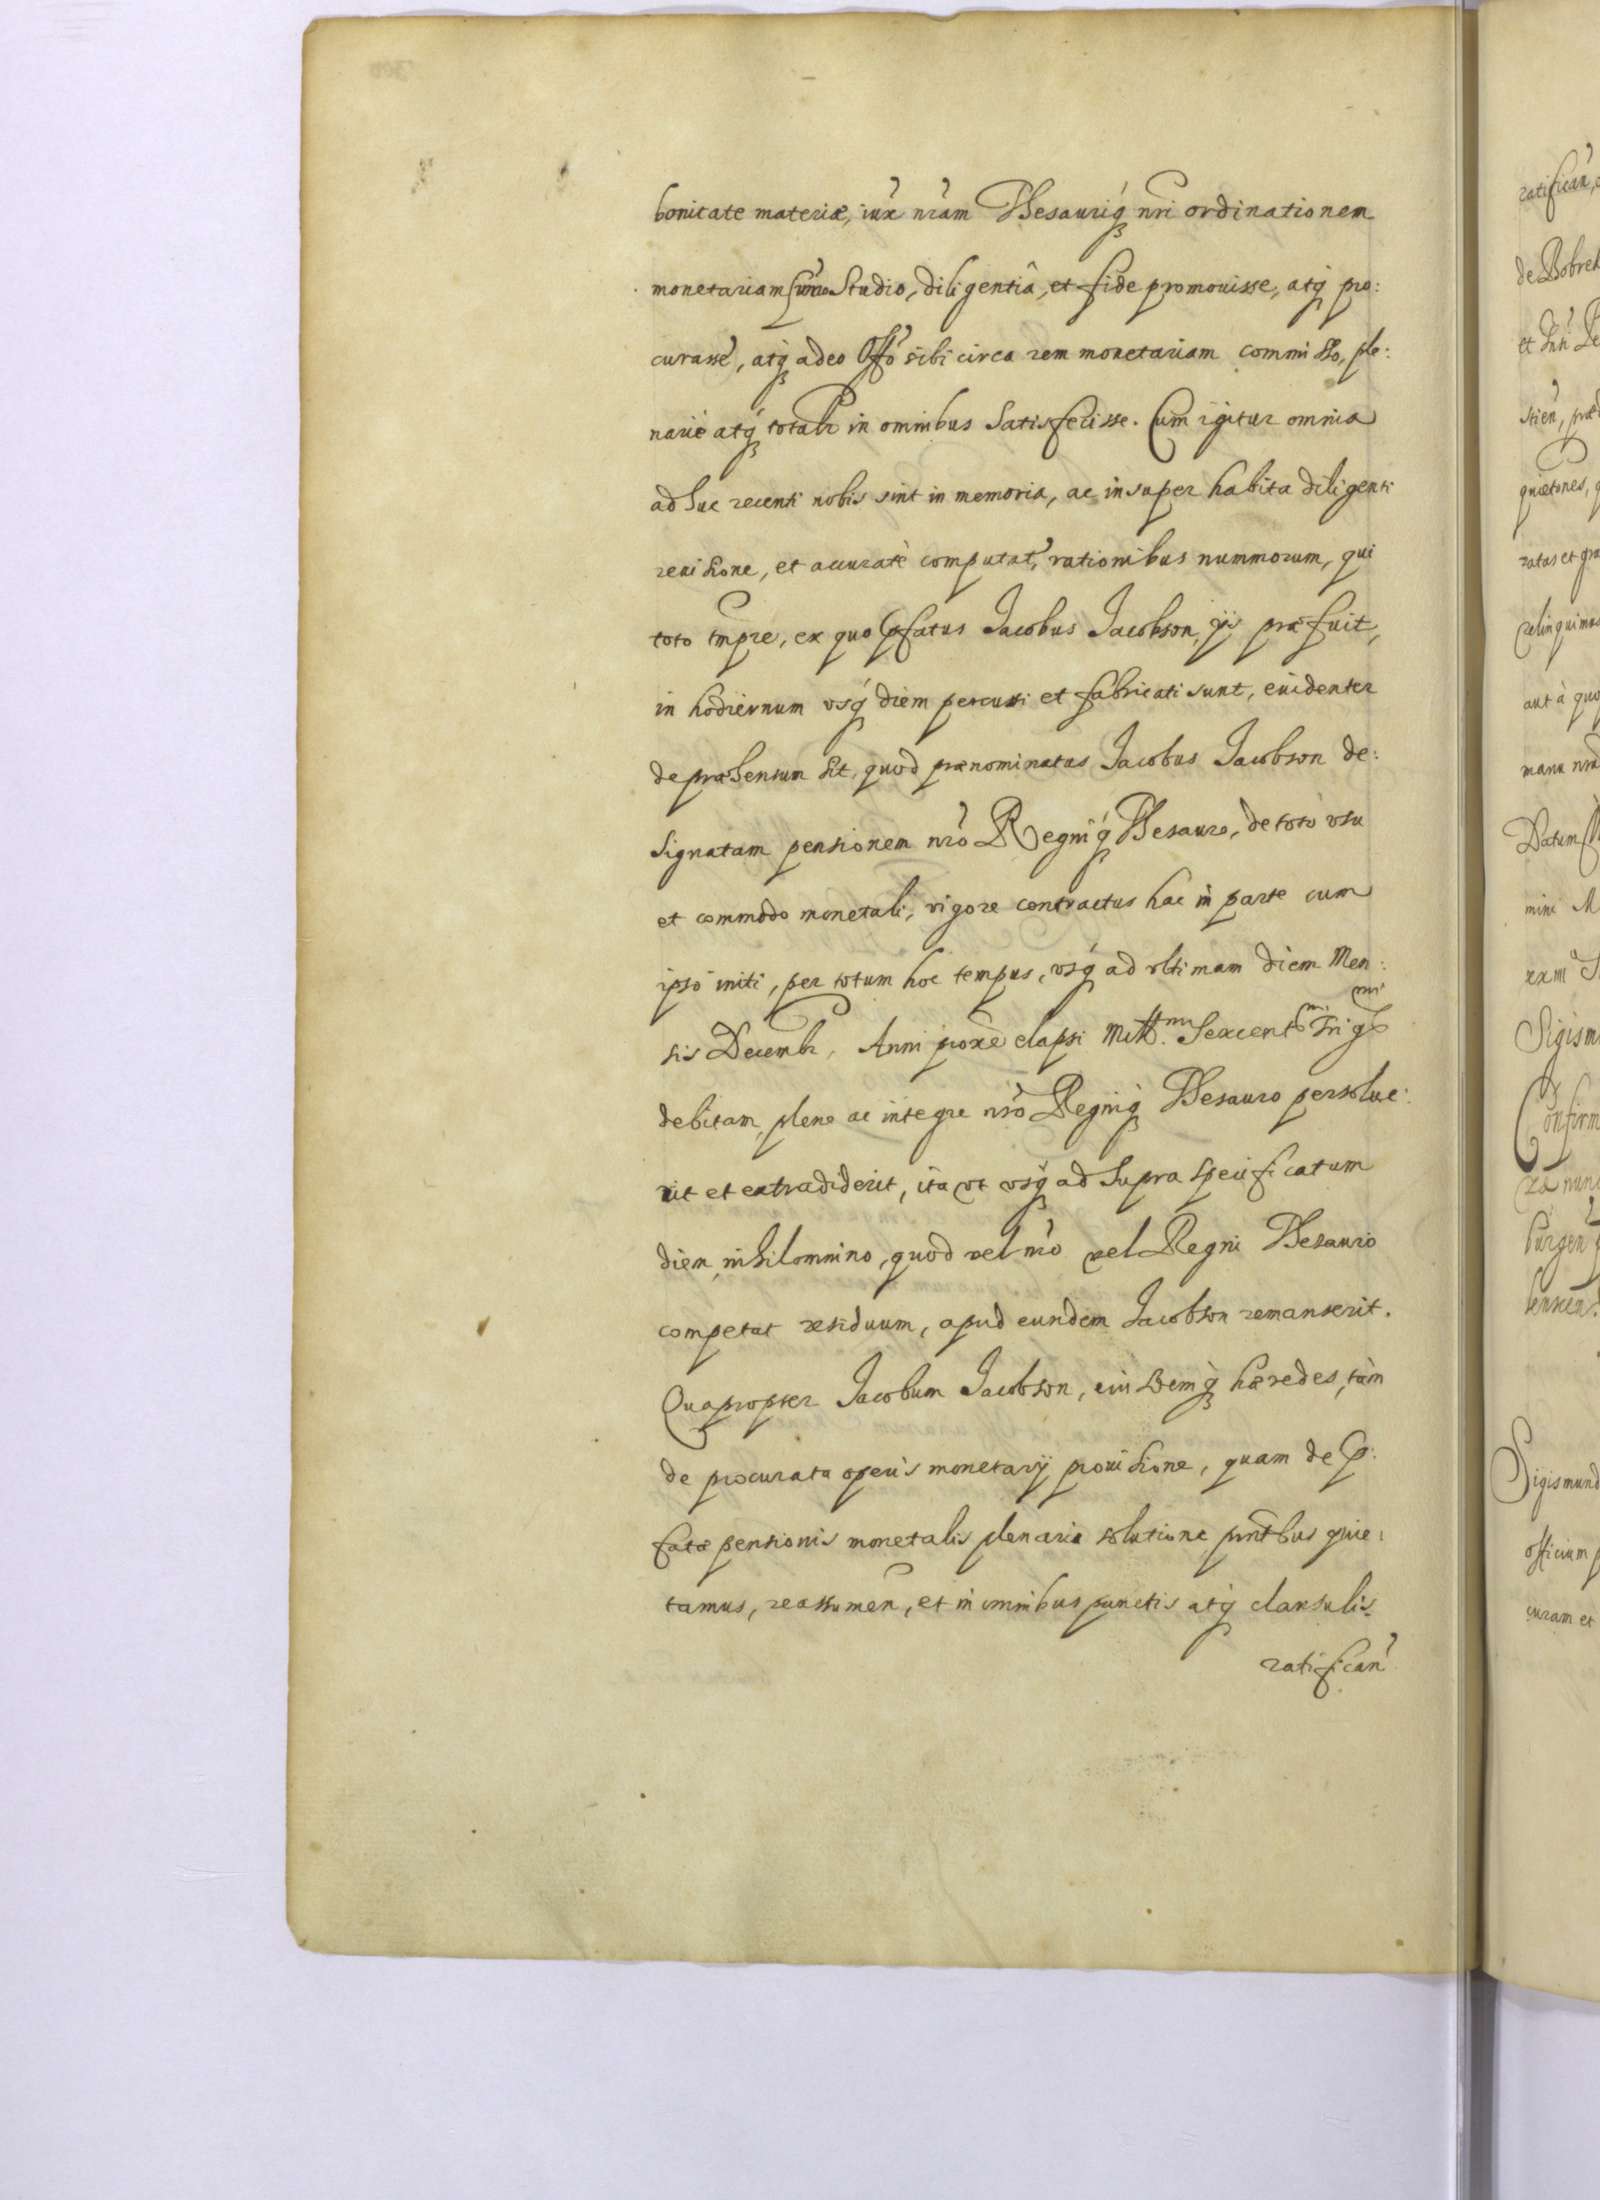 bonitate materiæ, iux nram Thesauriq nri ordinationem
monetariam sumo Studio, diligentiâ, et fide promouisse, atq pro:
curasse, atq adeo Offo sibi circa rem monetariam commisso, ple:
nariè atq totalr in omnibus Satisfecisse. Cum igitur omnia
adhuc recenti nobis sint in memoria, ac insuper habita diligenti
reuisione, et accuratè computat, rationibus nummorum, qui
toto tmpre, ex quo pfatus Jacobus Jacobson, ijs præfuit,
in hodiernum vsq diem percussi et fabricati sunt, euidenter
depræhensum sit, quod prænominatus Jacobus Jacobson de:
signatam pensionem nro Regniq Thesauro, de toto vsu
et commodo monetali, vigore contractus hac in parte cum
ipso initi, per totum hoc tempus, vsq ad vltimam diem Men:
sis Decembr, Anni proxe elapsi Mill.mi Sexcent.mi Trig.mi
debitam, plene ac integre nro Regniq Thesauro persolue:
rit et extradiderit, ita vt vsq ad supra specificatum
diem, nihilomnino, quod vel nro vel Regni Thesauro
competat residuum, apud eundem Jacobson remanserit.
Quapropter Jacobum Jacobson, eiusdemq hæredes, tàm
de procurata operis monetarij prouisione, quam de p:
fatæ pensionis monetalis plenaria solutione pntibus quie:
tamus, reassumen, et in omnibus punctis atq clausulis
ratifican
ratifican,
de Bobrek
stien,
quietones,
ratas et gra
relinquimus
aut à quo
manu nra
Datum
mini M
Sigism
Confirm
ræ nunc
Sigismund
officium
curam et